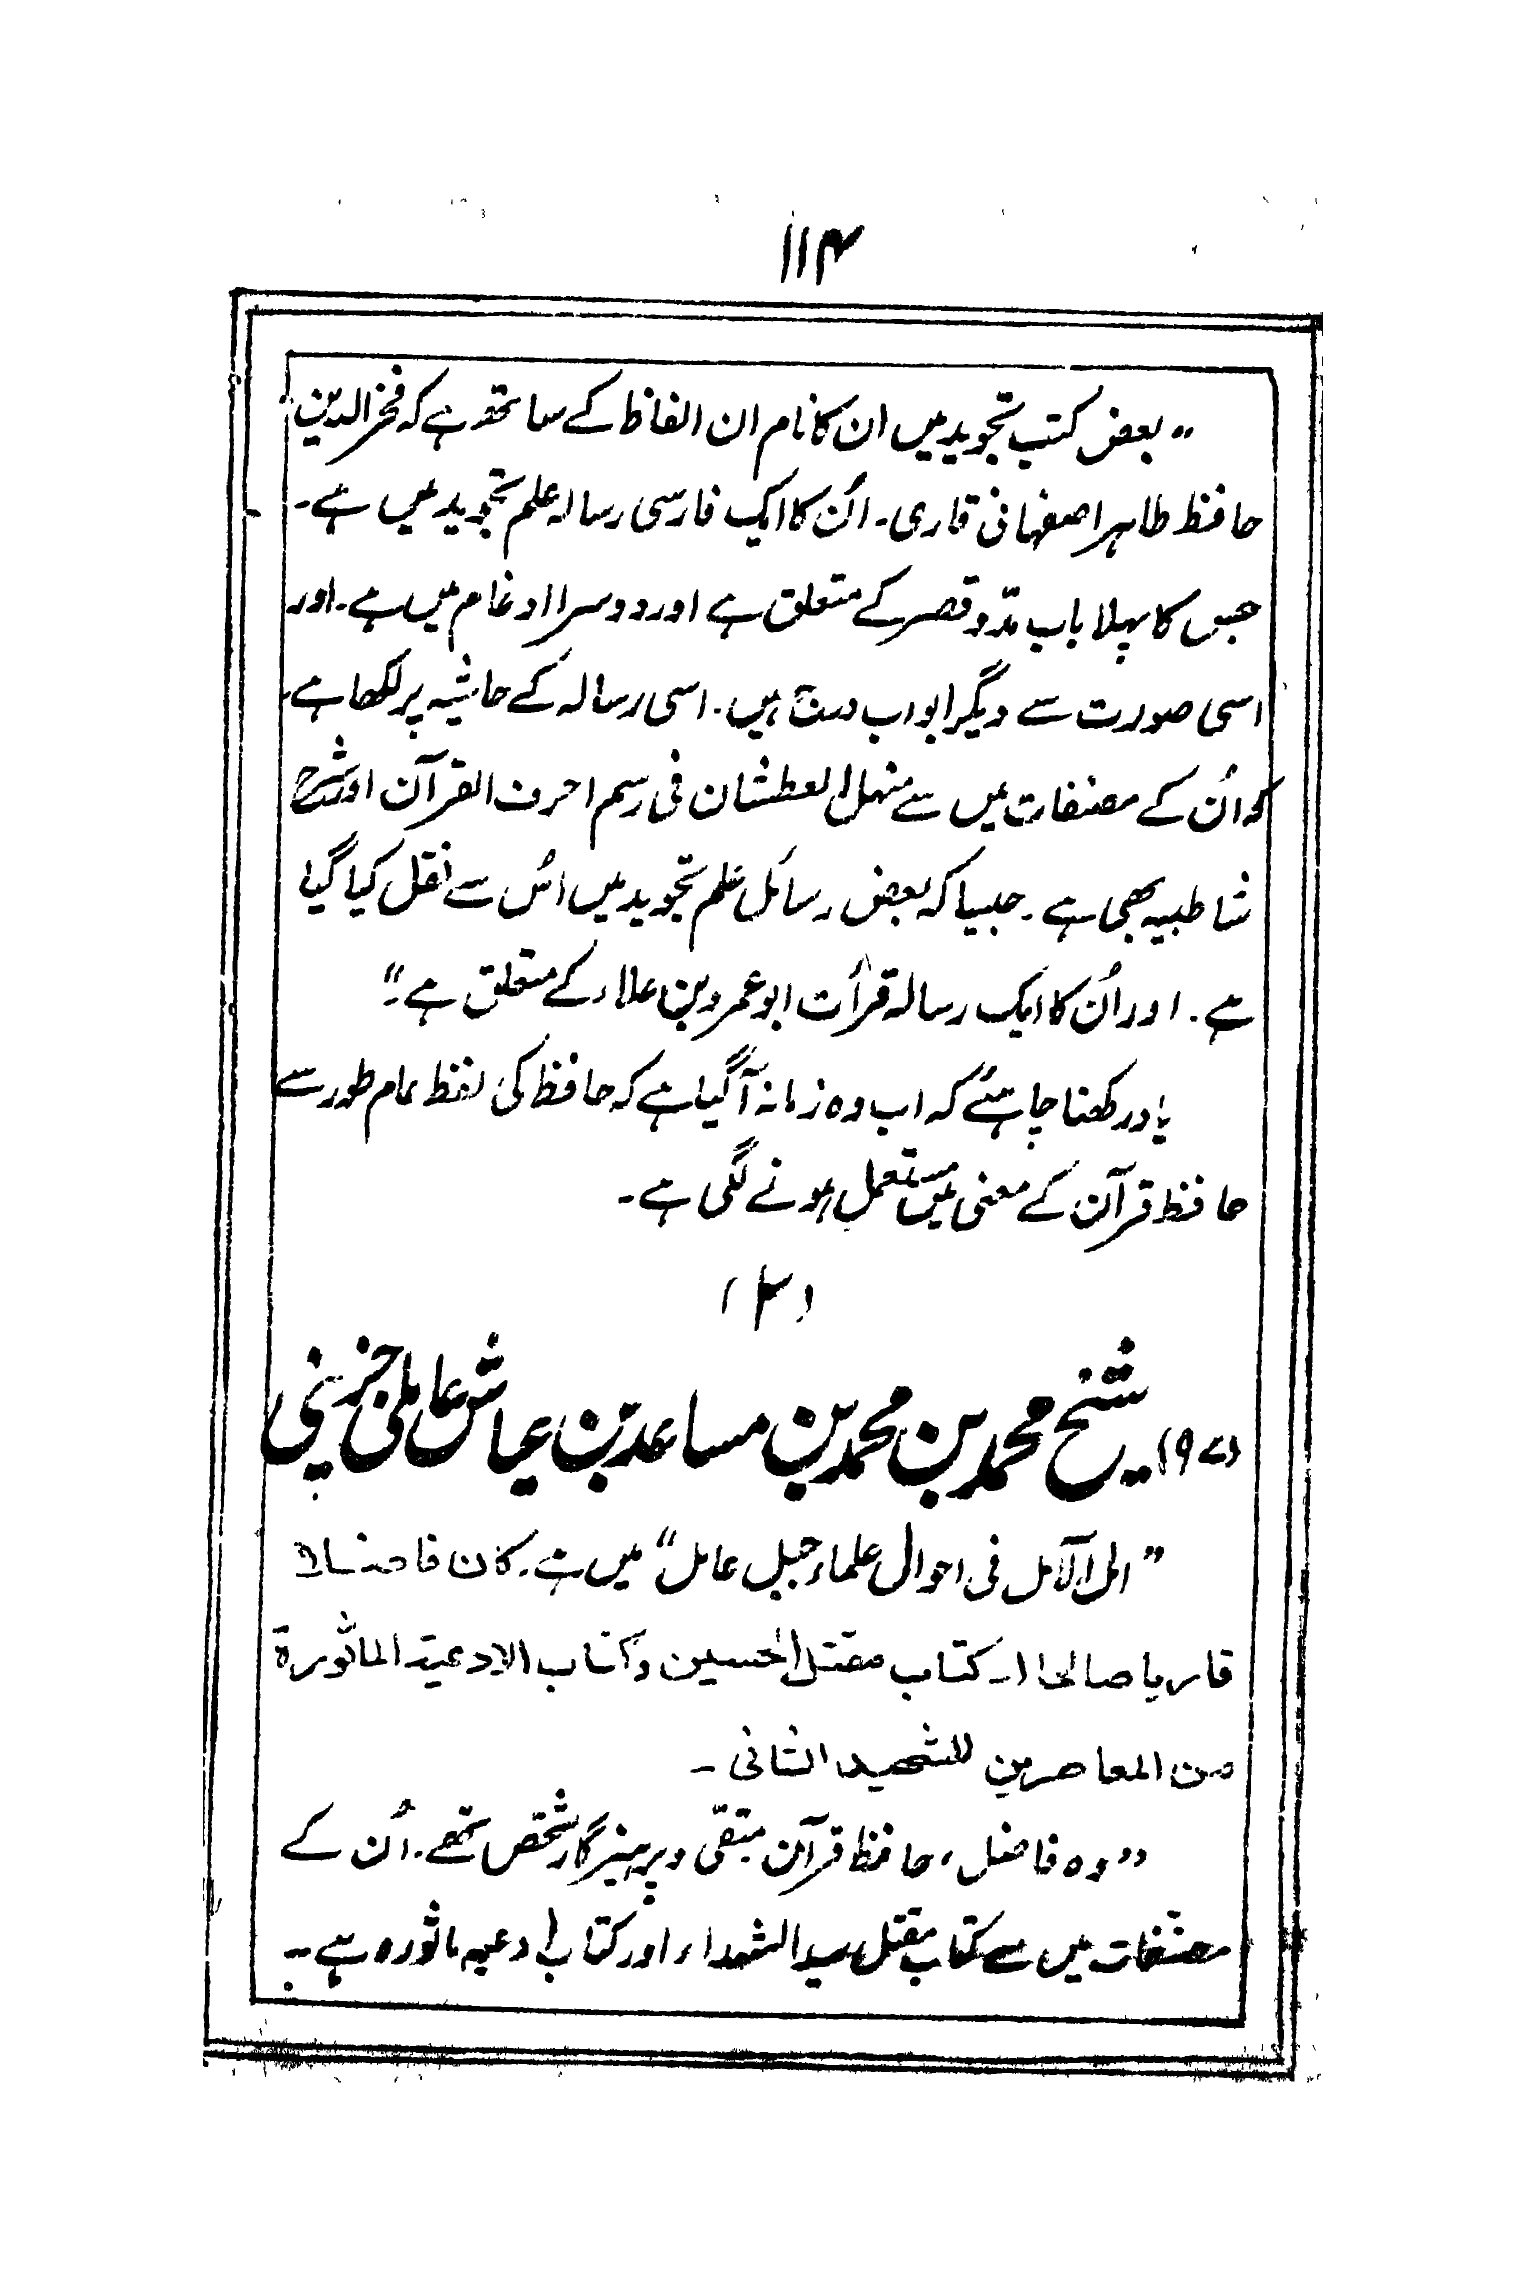 ۱۱۴
"بعض کتب تجوید میں ان کا نام ان الفاظ کے ساتھ ہے کہ فخر الدین
حافظ طاہر اصفہانی قاری۔ اُن کا ایک فارسی رسالہ علم تجوید میں ہے۔
جس کا پہلا باب مدّ و قصر کے متعلق ہے اور دوسرا ادغام میں ہے۔ اور
اسی صورت سے دیگر ابواب درج ہیں۔ اسی رسالہ کے حاشیہ پر لکھا ہے
کہ اُن کے مصنفات میں سے منہل العطشان فی رسم احرف القرآن اور شرح
شاطبیہ بھی ہے۔ جیسا کہ بعض رسائل علم تجوید میں اُس سے نقل کیا گیا
ہے۔ اور اُن کا ایک رسالہ قرأت ابو عمرو بن علاء کے متعلق ہے۔"
یاد رکھنا چاہئے کہ اب وہ زمانہ آ گیا ہے کہ حافظ کی لفظ عام طور سے
حافظ قرآن کے معنی میں مستعمل ہونے لگی ہے۔
(۲)
(۹۷) شیخ محمد بن محمد بن مساعد بن عیاش عاملی جزینی
"امل الآمل فی احوال علماء جبل عامل" میں ہے۔ کان فاضلا
قاریا صالحا ... کتاب مقتل الحسین وکتاب الادعیة الماثورة
من المعاصرین للشھید الثانی ۔
"وہ فاضل، حافظ قرآن متقی و پرہیزگار شخص تھے۔ اُن کے
مصنّفات میں سے کتاب مقتل سید الشہداء اور کتاب ادعیہ ماثورہ ہے۔